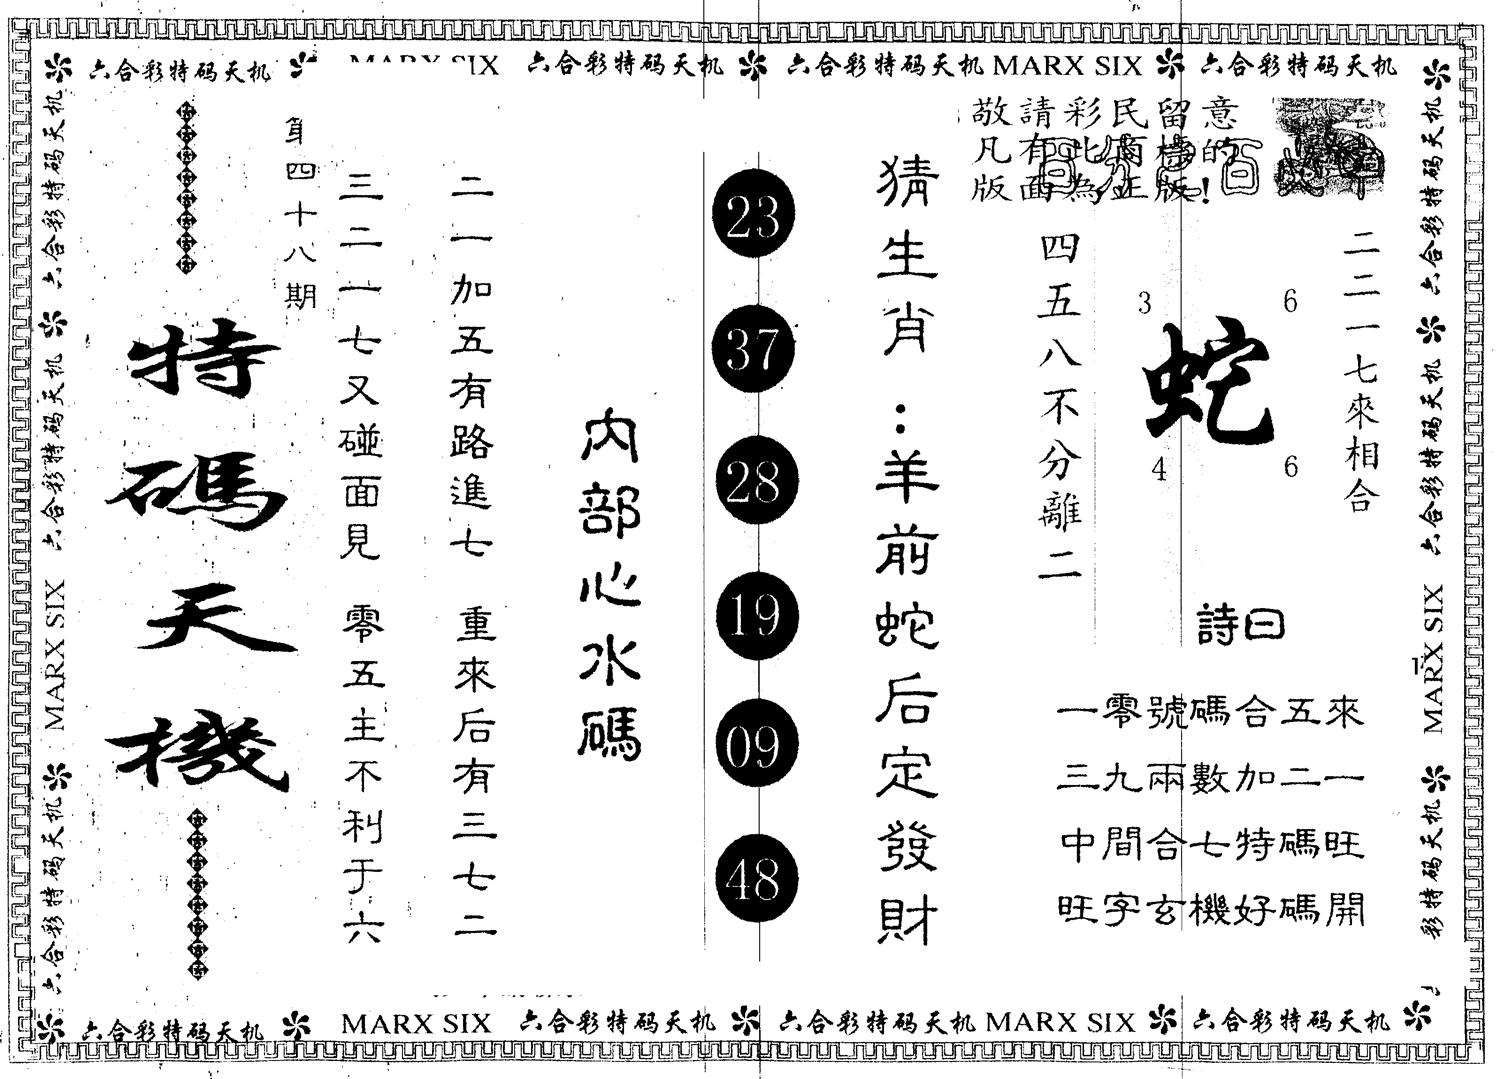 六合彩特码天机 MARX SIX 六合彩特码天机 六合彩特码天机 MARX SIX 六合彩特码天机
敬請彩民留意
凡有此面樣的
版面為正版!
二二一七來相合
3 6
蛇
4 6
四五八不分離二
詩曰
一零號碼合五來
三九兩數加二一
中間合七特碼旺
旺字玄機好碼開
猜生肖:羊前蛇后定發財
23
37
28
19
09
48
内部心水碼
二一加五有路進七 重來后有三七二
三二一七又碰面見 零五主不利于六
第四十八期
特碼天機
六合彩特码天机 六合彩特码天机 MARX SIX 六合彩特码天机
六合彩特码天机 六合彩特码天机 MARX SIX 彩特码天机
六合彩特码天机 MARX SIX 六合彩特码天机 六合彩特码天机 MARX SIX 六合彩特码天机